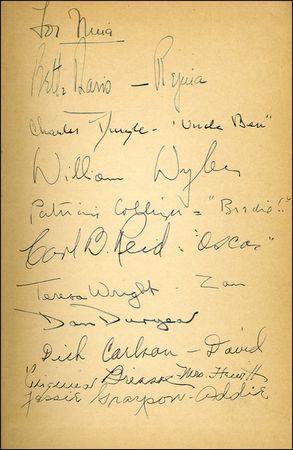 For Nina
Bette Davis — Regina
Charles Dingle - "Uncle Ben"
William Wyler
Patricia Collinge = "Birdie!"
Carl B. Reid - "Oscar"
Teresa Wright - Zan
Dan Duryea
Dick Carlson - David
Virginia Brissac - Mrs. Hewitt
Jessie Grayson - Addie